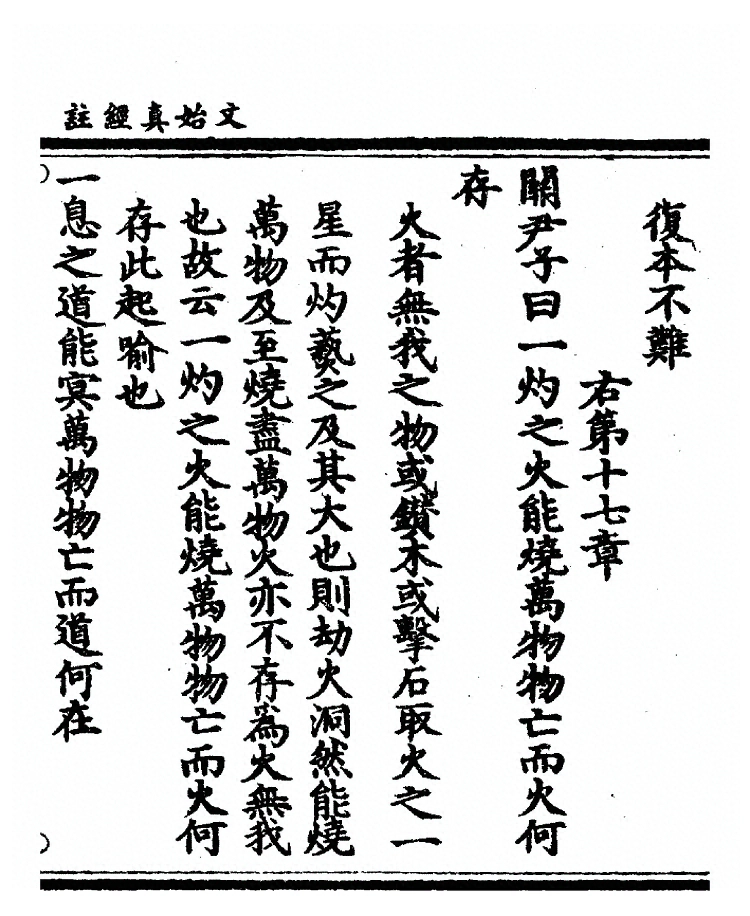 文始真經註
復本不難
右第十七章
關尹子曰一灼之火能燒萬物物亡而火何
存
火者無我之物或鑽木或擊石取火之一
星而灼爇之及其大也則劫火洞然能燒
萬物及至燒盡萬物火亦不存爲火無我
也故云一灼之火能燒萬物物亡而火何
存此起喻也
一息之道能冥萬物物亡而道何在